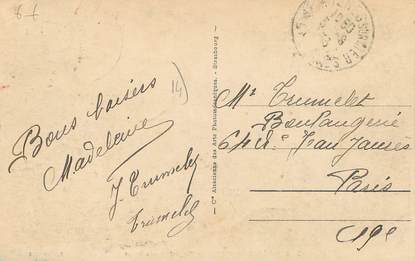 Bons baisers
Madeleine
J. Trumelet
Trumelet
Cie Alsacienne des Arts Photomécaniques - Strasbourg
14)
Mr Trumelet
Boulangerie
64 r. Jean Jaurès
Paris
19e